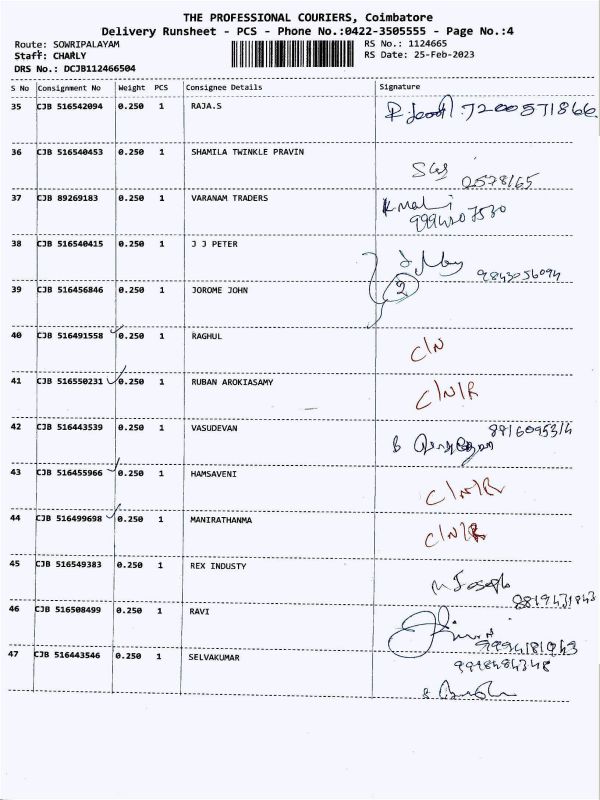 THE PROFESSIONAL COURIERS, Coimbatore
Delivery Runsheet - PCS - Phone No.:0422-3505555 - Page No.:4
Route: SOWRIPALAYAM RS No.: 1124665
Staff: CHARLY RS Date: 25-Feb-2023
DRS No.: DCJB112466504
S No Consignment No Weight PCS Consignee Details Signature
35 CJB 516542094 0.250 1 RAJA.S 7200571866
36 CJB 516540453 0.250 1 SHAMILA TWINKLE PRAVIN
37 CJB 89269183 0.250 1 VARANAM TRADERS
38 CJB 516540415 0.250 1 J J PETER 9843056094
39 CJB 516456846 0.250 1 JOROME JOHN 2
40 CJB 516491558 0.250 1 RAGHUL C/N
41 CJB 516550231 0.250 1 RUBAN AROKIASAMY C/N/R
42 CJB 516443539 0.250 1 VASUDEVAN
43 CJB 516455966 0.250 1 HAMSAVENI C/N/R
44 CJB 516499698 0.250 1 MANIRATHANMA C/N/R
45 CJB 516549383 0.250 1 REX INDUSTY M Joseph
46 CJB 516508499 0.250 1 RAVI
47 CJB 516443546 0.250 1 SELVAKUMAR